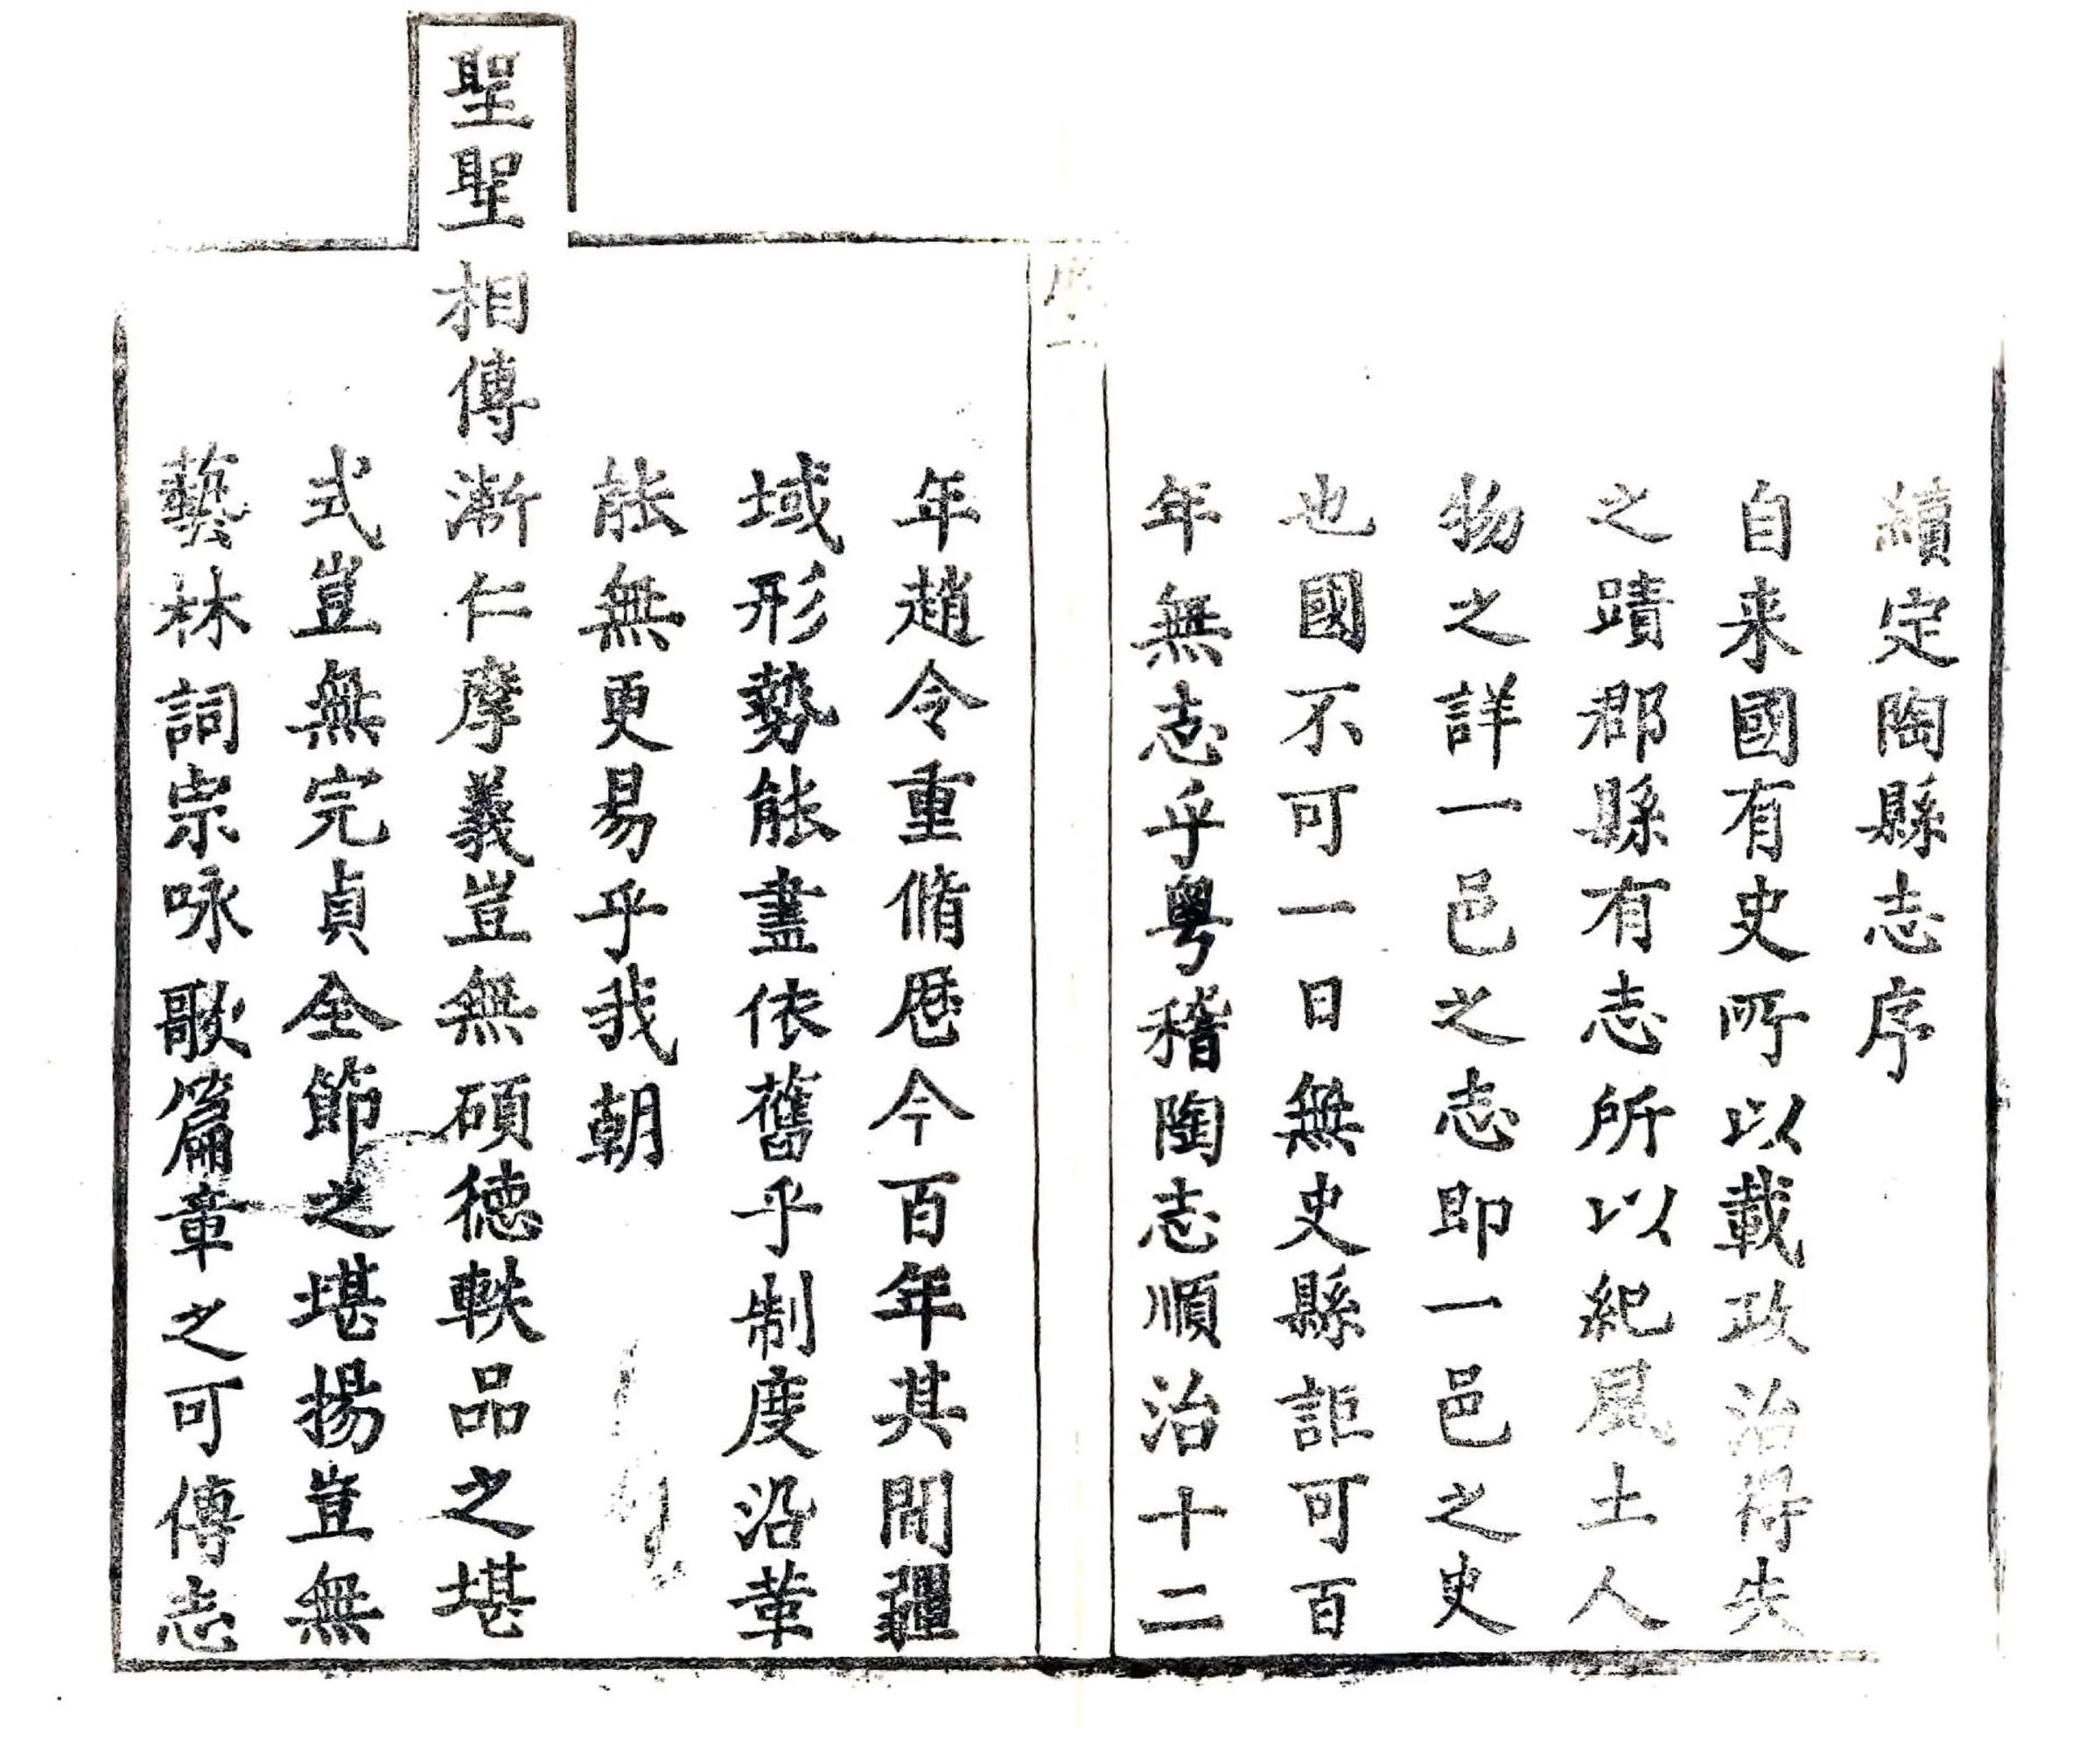 續定陶縣志序
自来國有史所以載政治得失
之蹟郡縣有志所以紀風土人
物之詳一邑之志即一邑之史
也國不可一日無史縣詎可百
年無志乎粤稽陶志順治十二
序
一
年趙令重脩歷今百年其間疆
域形勢能盡依舊乎制度沿革
能無更易乎我朝
聖聖相傳漸仁摩義豈無碩徳軼品之堪
式豈無完貞全節之堪揚豈無
藝林詞宗咏歌篇章之可傳志